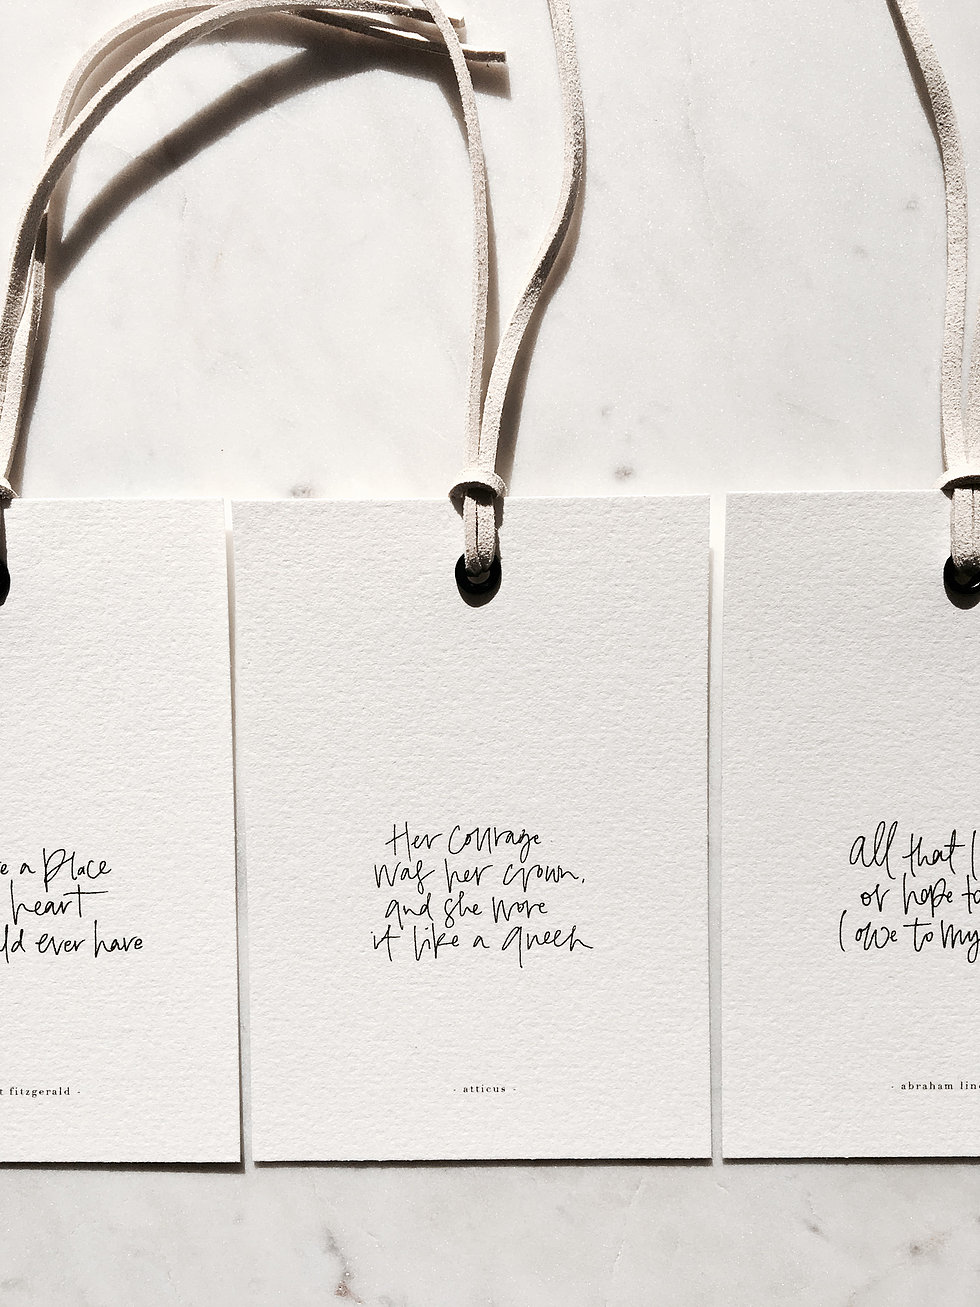 a place
heart
ld ever have
t fitzgerald -
Her courage
was her crown,
and she wore
it like a queen
- atticus -
all that I
or hope to
I owe to my
- abraham linc